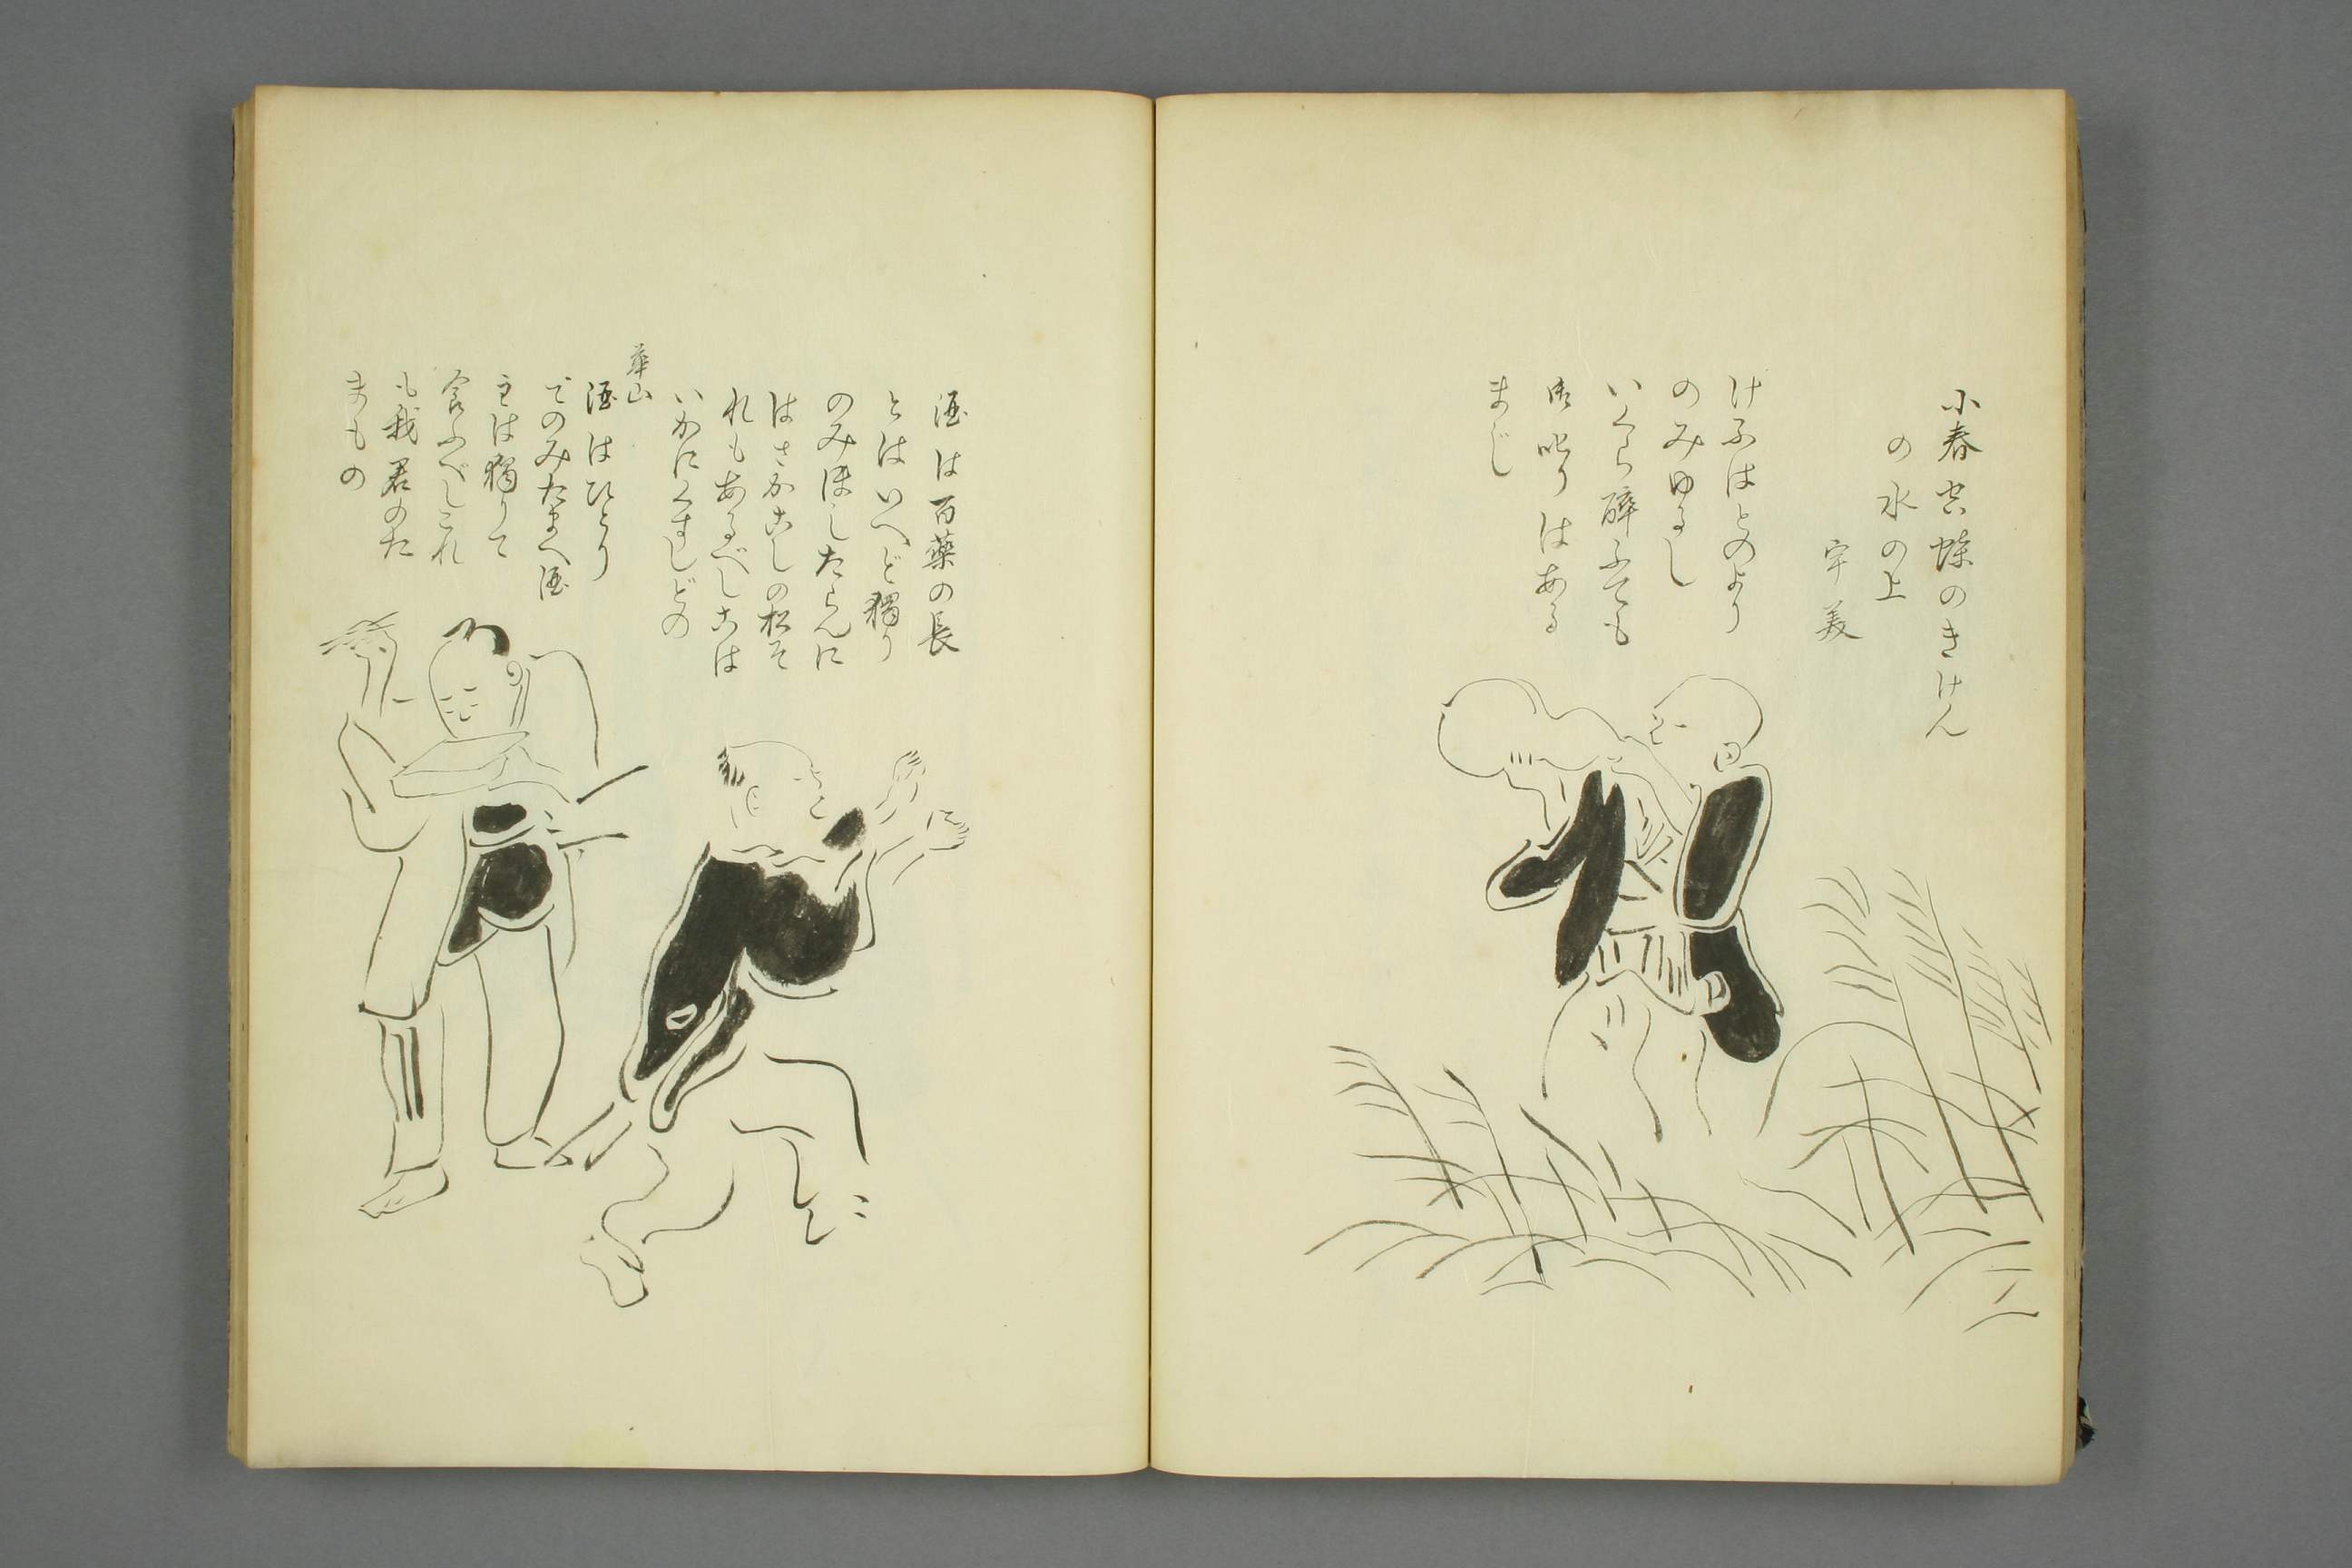 小春空蝶のきけん
の水の上
宇美
けふはとのより
のみゆるし
いくら醉ふても
御叱りはある
まじ
酒は百藥の長
とはいへど獨り
のみほしたらんに
はさかなこしの松そ
れもあるべしこは
いかにくすしどの
華山
酒はひとり
でのみたまへ酒
主は獨りて
食ふべしこれ
も我君のた
まもの